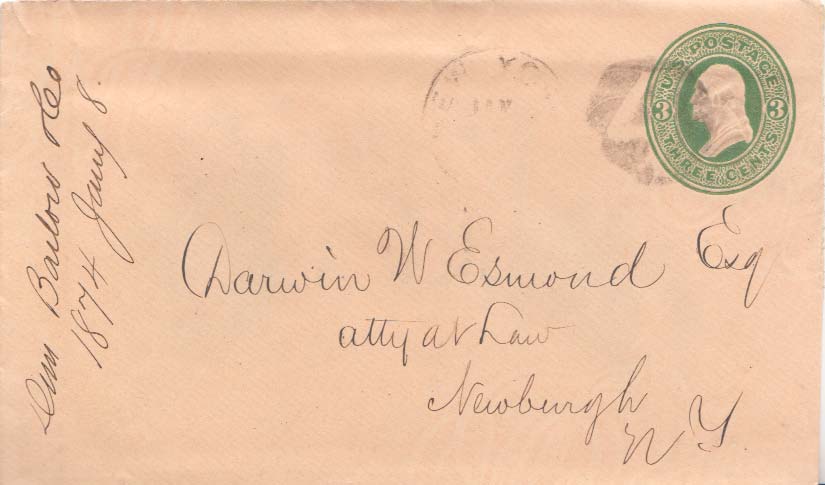 U.S. POSTAGE
3 3
THREE CENTS
W YO
JAN
Darwin W Esmond Esq
atty at Law
Newburgh
N Y.
Barlow & Co
1874 Jany 8.